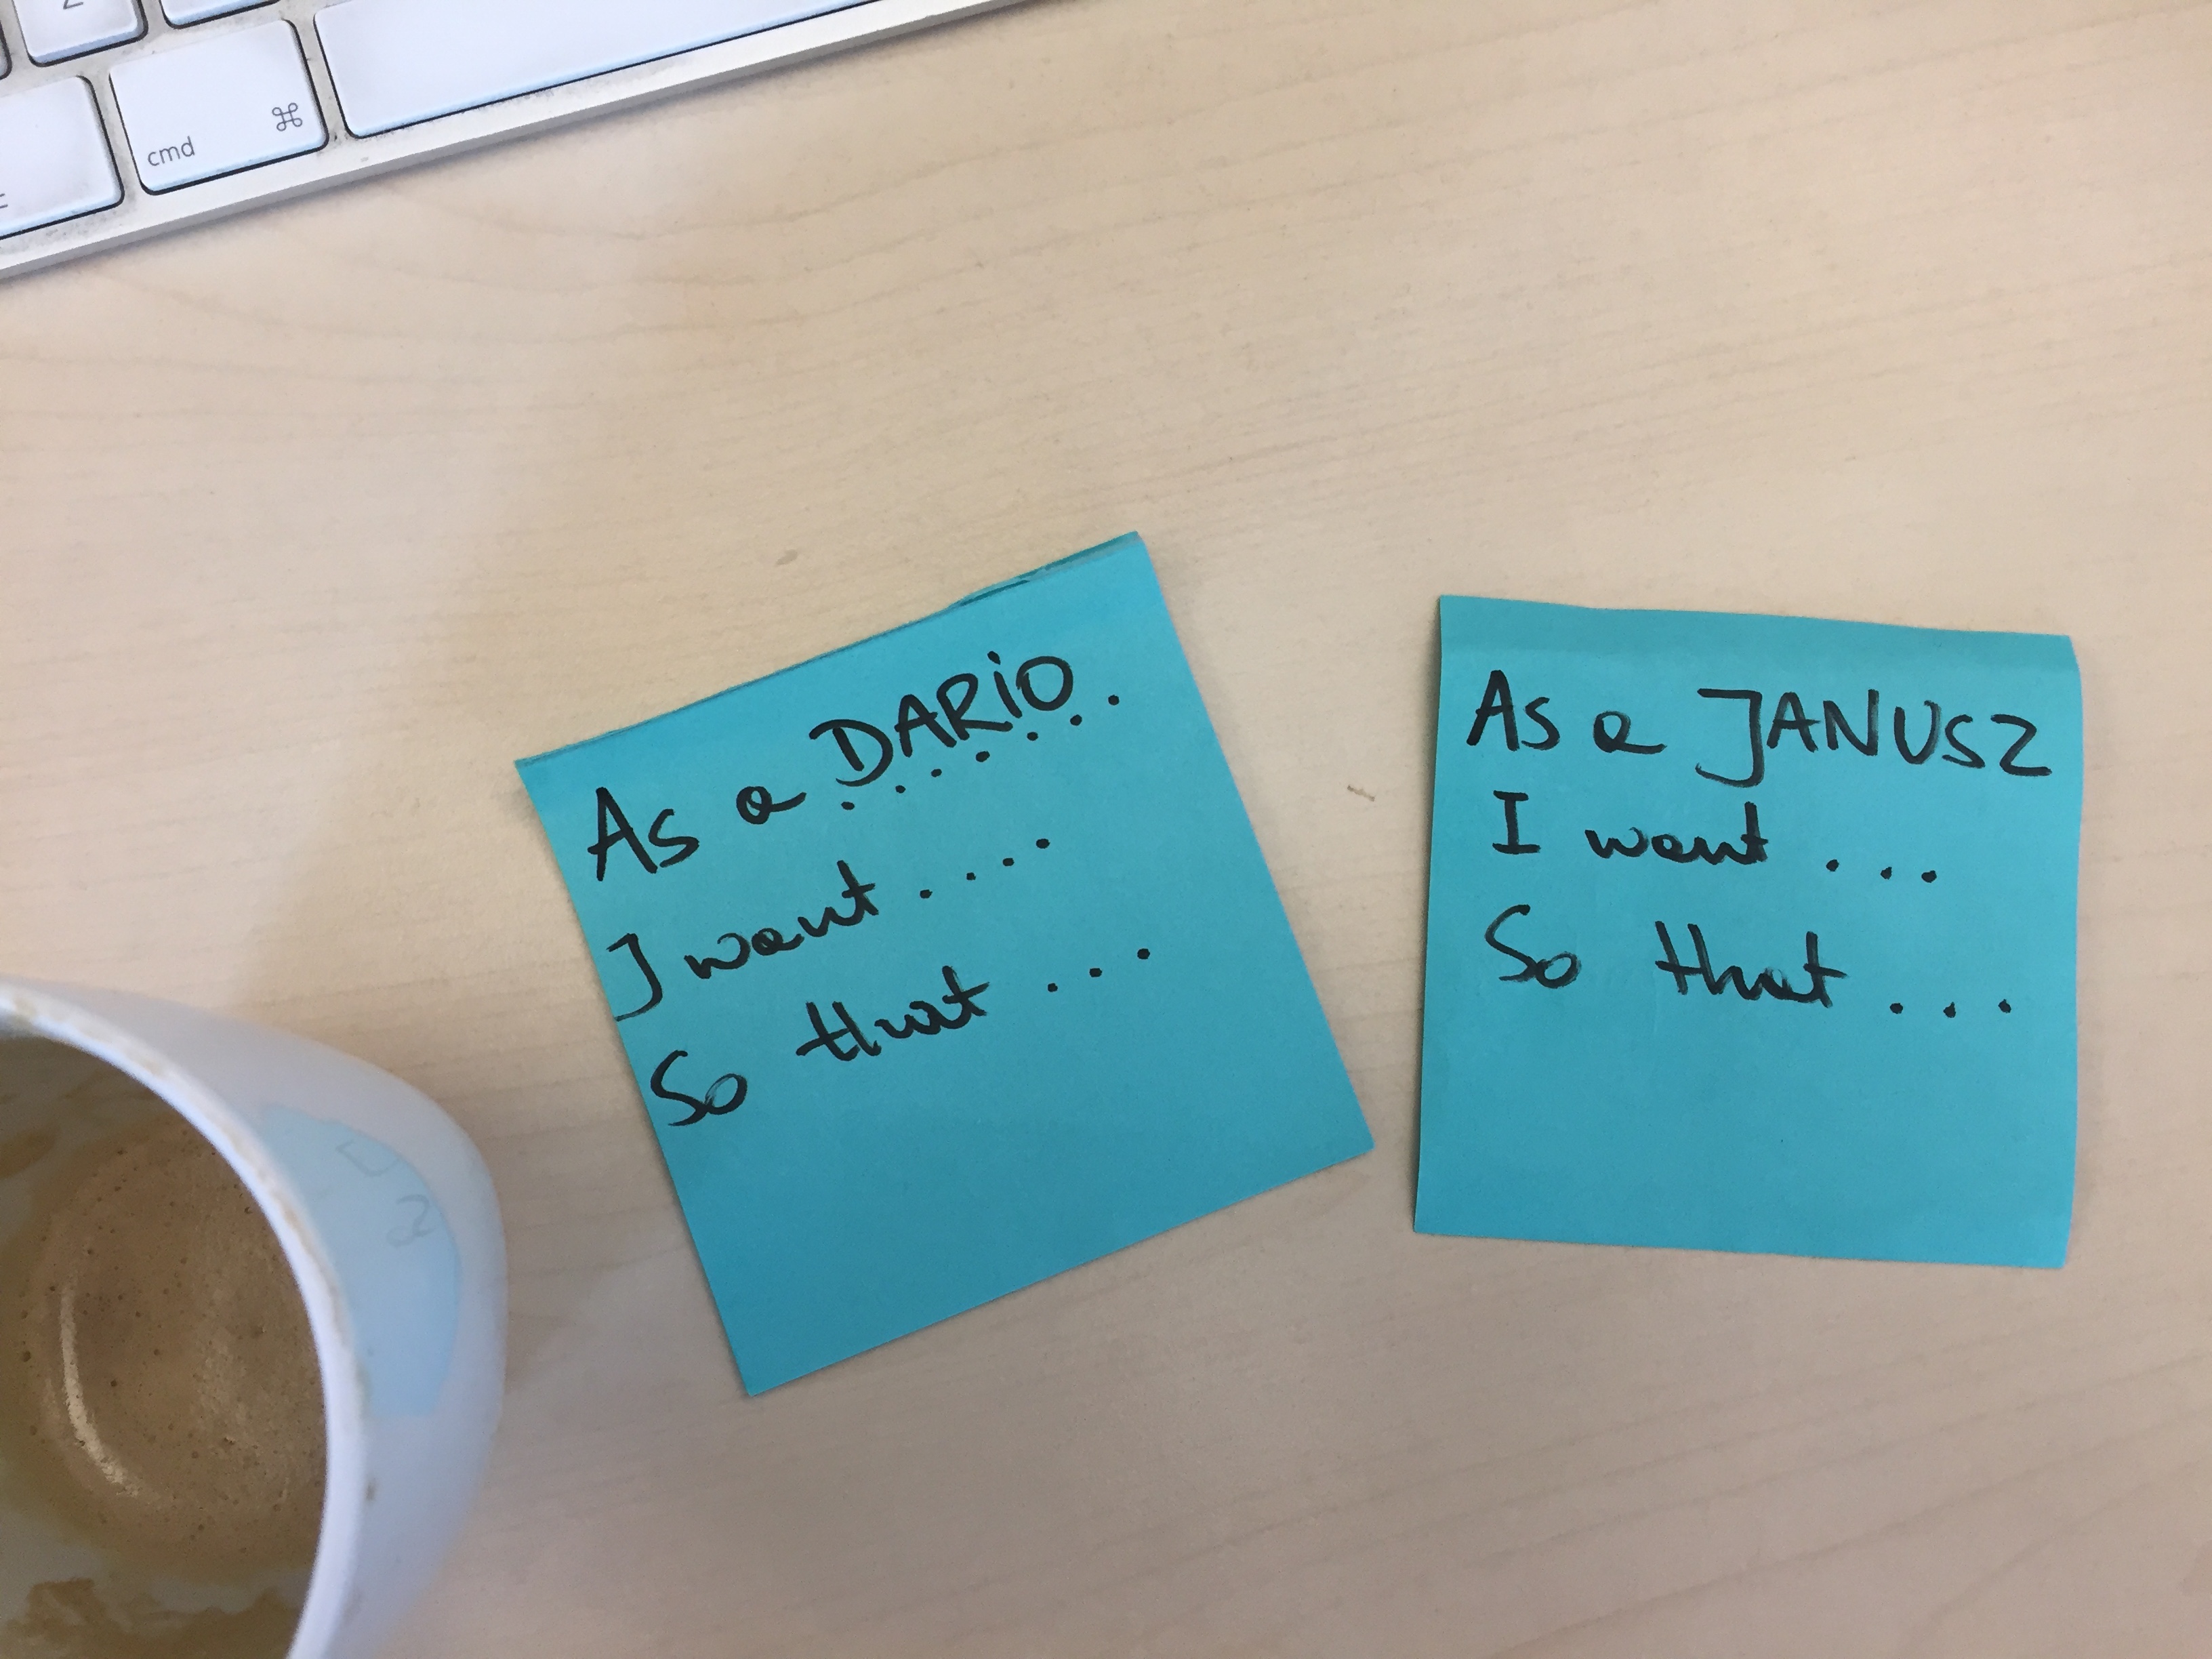 cmd ⌘
As a DARiO..
I want ....
So that ...
As a JANUSZ
I want ...
So that ...